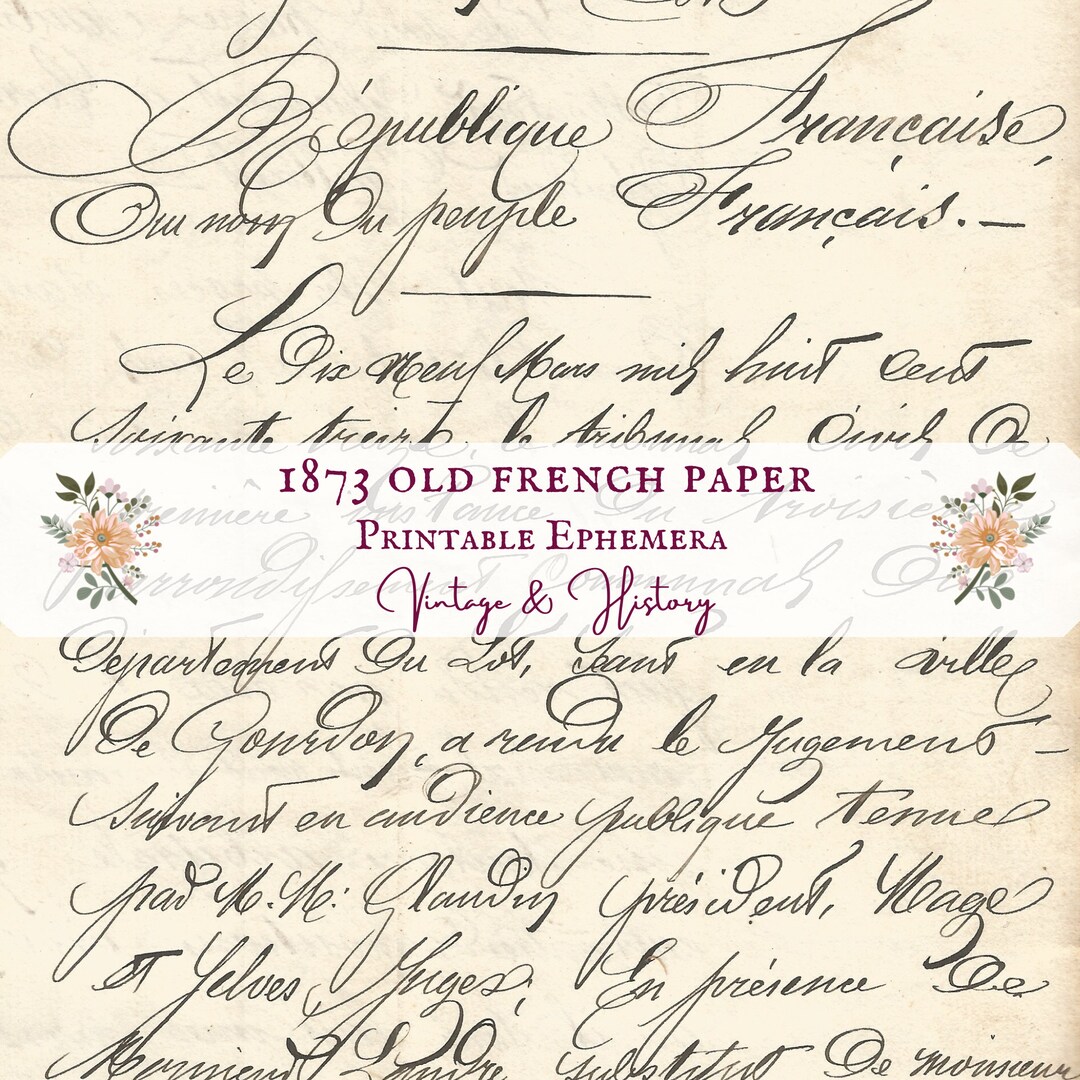 République Française,
Au nom Du peuple Français. —
Le Dix Neuf Mars mil huit cent
Soixante treize, le tribunal Civil De
1873 OLD FRENCH PAPER
première instance Du troisième
PRINTABLE EPHEMERA
arrondissement Communal Du
Vintage & History
Département Du Lot, Séant en la ville
De Gourdon, a rendu le Jugement —
Suivant en audience publique tenue
par M. M. président,
et Juges; En présence De
Monsieur substitut De monsieur